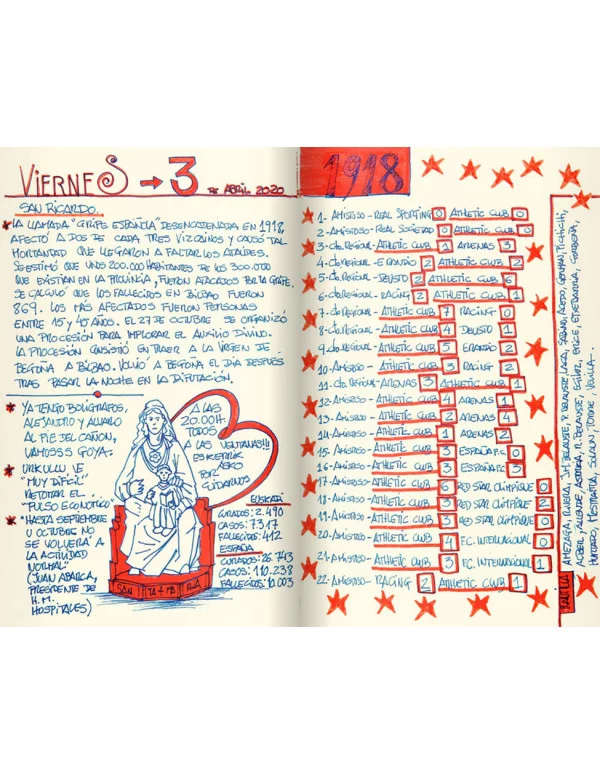 VIERNES → 3 DE ABRIL 2020
SAN RICARDO.
LA LLAMADA "GRIPE ESPAÑOLA" DESENCADENADA EN 1918,
AFECTÓ A DOS DE CADA TRES VIZCAINOS Y CAUSÓ TAL
MORTANDAD QUE LLEGARON A FALTAR LOS ATAÚDES.
SE ESTIMÓ QUE UNOS 200.000 HABITANTES DE LOS 300.000
QUE EXISTÍAN EN LA PROVINCIA, FUERON ATACADOS POR LA GRIPE.
SE CALCULÓ QUE LOS FALLECIDOS EN BILBAO FUERON
869. LOS MÁS AFECTADOS FUERON PERSONAS
ENTRE 15 Y 40 AÑOS. EL 27 DE OCTUBRE SE ORGANIZÓ
UNA PROCESIÓN PARA IMPLORAR EL AUXILIO DIVINO.
LA PROCESIÓN CONSISTIÓ EN TRAER A LA VIRGEN DE
BEGOÑA A BILBAO. VOLVIÓ A BEGOÑA EL DÍA DESPUÉS
TRAS PASAR LA NOCHE EN LA DIPUTACIÓN.
YA TENGO BOLÍGRAFOS,
ALEJANDRO Y ALVARO
AL PIE DEL CAÑON,
VAMOSSS GOYA.
URKULLU VE
"MUY DIFÍCIL"
RETOMAR EL
"PULSO ECONOMICO"
"HASTA SEPTIEMBRE
U OCTUBRE NO
SE VOLVERÁ A
LA ACTIVIDAD
NORMAL"
(JUAN ABARCA,
PRESIDENTE DE
H.M.
HOSPITALES)
A LAS
20.00H.
TODOS
A LAS VENTANAS!!!
ESKERRIK
ASKO
POR
CUIDARNOS
EUSKADI
CURADOS: 2.490
CASOS: 7.317
FALLECIDOS: 412
ESPAÑA
CURADOS: 26.743
CASOS: 110.238
FALLECIDOS: 10.003
SAN TA MA RIA
1918
1- AMISTOSO - REAL SPORTING 0 ATHLETIC CLUB 0
2- AMISTOSO - REAL SOCIEDAD 0 ATHLETIC CLUB 0
3- CTO. REGIONAL - ATHLETIC CLUB 1 ARENAS 3
4- CTO. REGIONAL - ERANDIO 2 ATHLETIC CLUB 2
5- CTO. REGIONAL - DEUSTO 2 ATHLETIC CLUB 6
6- CTO. REGIONAL - RACING 2 ATHLETIC CLUB 1
7- CTO. REGIONAL - ATHLETIC CLUB 7 RACING 0
8- CTO. REGIONAL - ATHLETIC CLUB 4 DEUSTO 1
9- CTO. REGIONAL - ATHLETIC CLUB 5 ERANDIO 2
10- AMISTOSO - ATHLETIC CLUB 3 RACING 2
11- CTO. REGIONAL - ARENAS 3 ATHLETIC CLUB 1
12- AMISTOSO - ATHLETIC CLUB 4 ARENAS 1
13- AMISTOSO - ATHLETIC CLUB 2 ARENAS 4
14- AMISTOSO - ATHLETIC CLUB 1 ARENAS 2
15- AMISTOSO - ATHLETIC CLUB 3 ESPAÑA F.C. 0
16- AMISTOSO - ATHLETIC CLUB 3 ESPAÑA F.C. 3
17- AMISTOSO - ATHLETIC CLUB 6 RED STAR OLIMPIQUE 0
18- AMISTOSO - ATHLETIC CLUB 2 RED STAR OLIMPIQUE 2
19- AMISTOSO - ATHLETIC CLUB 3 RED STAR OLIMPIQUE 0
20- AMISTOSO - ATHLETIC CLUB 4 F.C. INTERNACIONAL 0
21- AMISTOSO - ATHLETIC CLUB 3 F.C. INTERNACIONAL 1
22- AMISTOSO - RACING 2 ATHLETIC CLUB 1
AMEZAGA, RIVERA, J.M. BELAUSTE, P. BELAUSTE, LACA, SABINO, ACEDO, GERMAN, PICHICHI,
ALBERI, ALLENDE, R. BELAUSTE, EGUIAZ, ERICE,
HURTADO, MESTRAITUA, SOLAUN,